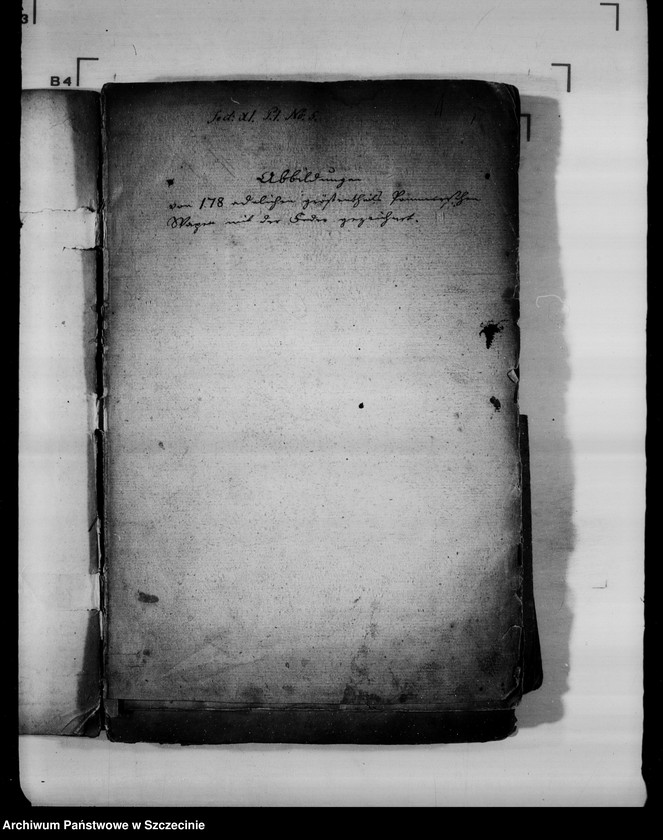 B4
Sect. XI. P. 1. No. 5.
Abbildungen
von 178 adelichen größtentheils Pommerschen
Wapen mit der Feder gezeichnet.
Archiwum Państwowe w Szczecinie